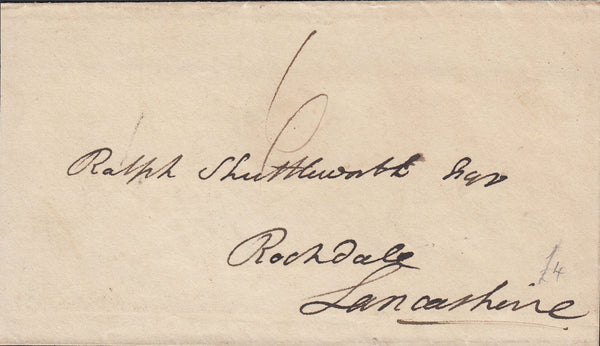 6
Ralph Shuttleworth Esqr
Rochdale
£4
Lancashire